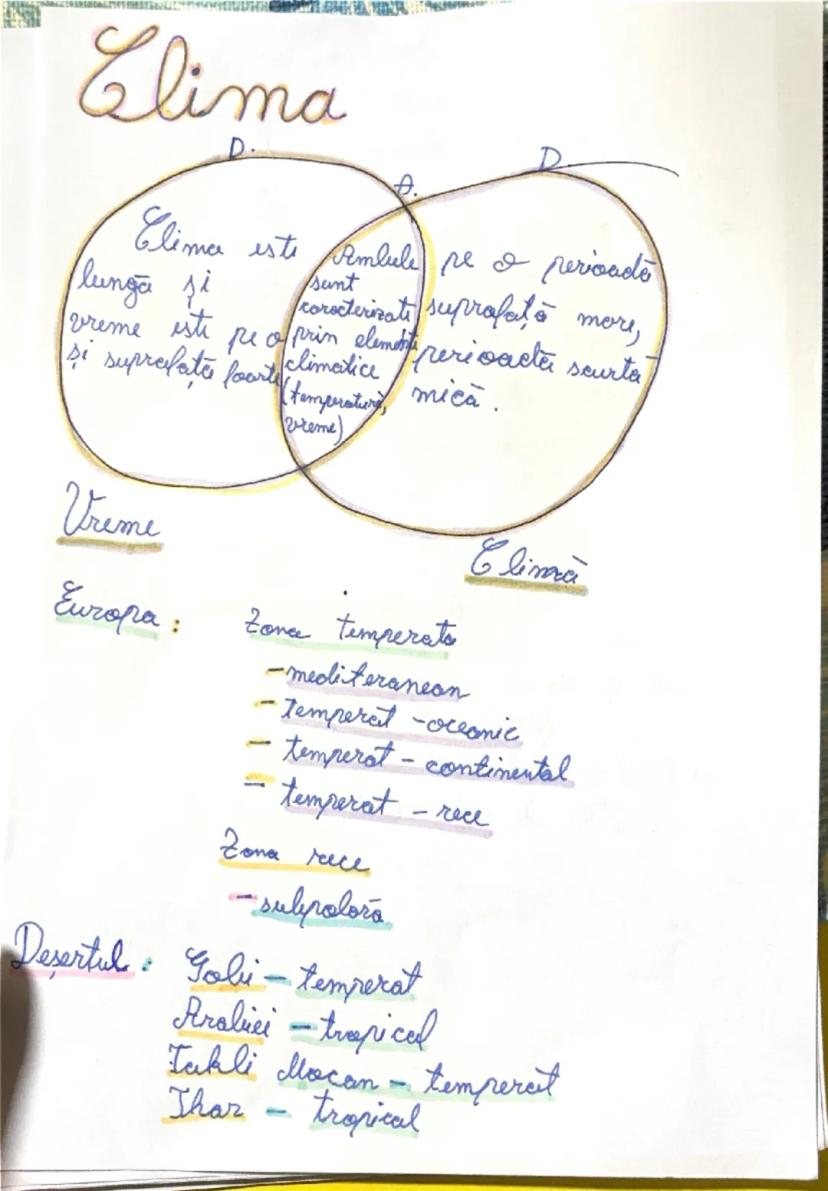 Clima
D. A. D
Clima este Ambele pe o perioadă
lungă și sunt
caracterizate suprafață mare,
vreme este pe o prin elemente
și suprafață foarte climatice perioadă scurtă
(temperatură, mică.
vreme)
Vreme
Climă
Europa: Zona temperata
- mediteranean
- temperat - oceanic
- temperat - continental
- temperat - rece
Zona rece
- subpolară
Deșertul: Gobi - temperat
Arabiei - tropical
Takli Mocan - temperat
Thar - tropical